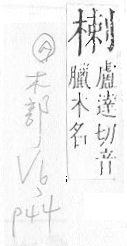 楋
盧達切音
臘木名
木部,
V6,
p44